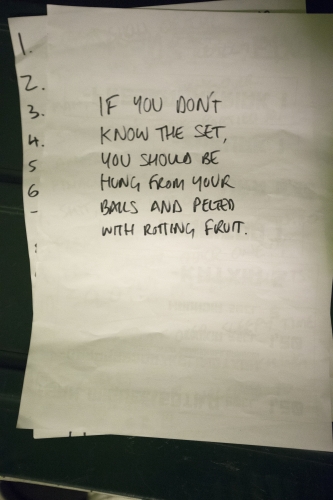 1.
2.
3.
4.
5
6
IF YOU DON'T
KNOW THE SET,
YOU SHOULD BE
HUNG FROM YOUR
BALLS AND PELTED
WITH ROTTING FRUIT.